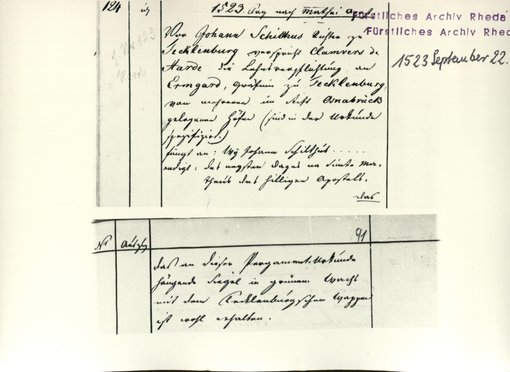 124
1523 Tag nach Mathei Apost.
Fürstliches Archiv Rheda
Fürstliches Archiv Rhed
1523 September 22.
Vor Johann Schilthus Küster zu
Tecklenburg verspricht Clamver de
Harde die Lehnsverpflichtung an
Ermgard, Gräfinn zu Tecklenburg,
von mehreren im Stift Osnabrück
gelegenen Höfen (sind in der Urkunde
spezifizirt)
fängt an: Wij Johann Schilthus......
endigt: des negsten dages na Sunte Ma-
theus des hilligen Apostels.
Das
No 91
das an dieser Pergament-Urkunde
hängende Siegel in grünem Wachs
mit dem Tecklenburgschen Wappen
ist wohl erhalten.